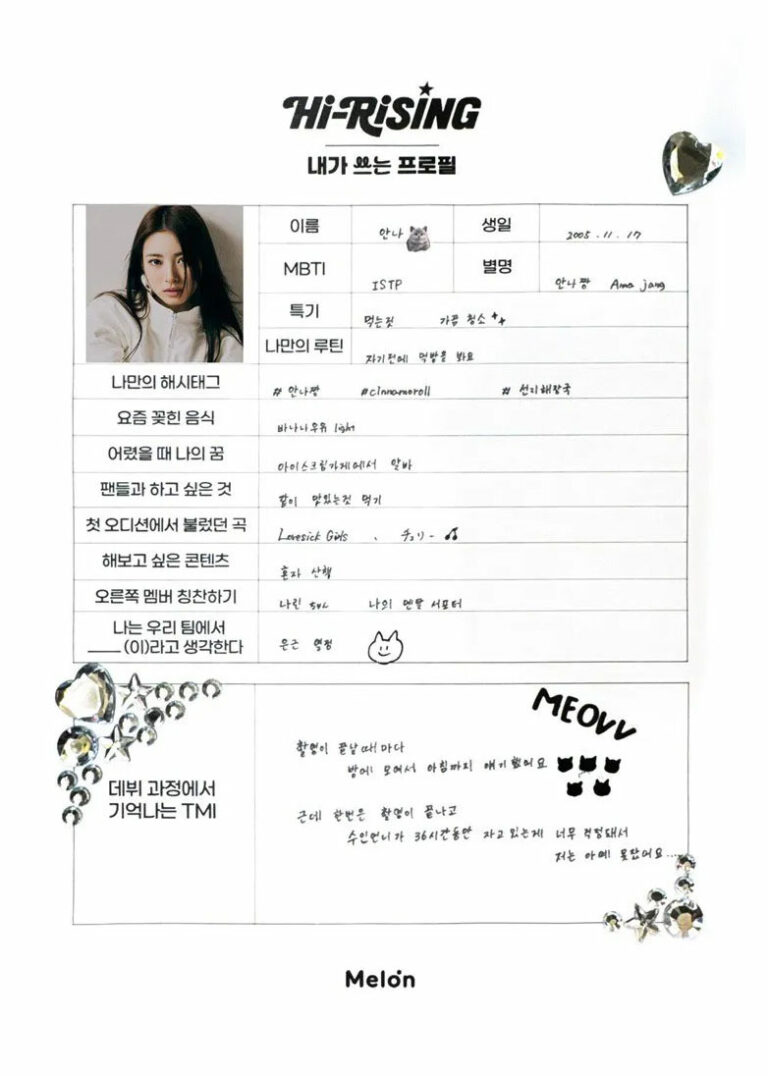 Hi-RiSiNG
내가 쓰는 프로필
이름 안나 생일 2005.11.17
MBTI ISTP 별명 안나짱 Anna jang
특기 먹는것 가끔 청소
나만의 루틴 자기전에 먹방을 봐요
나만의 해시태그 #안나짱 #cinnamoroll #선지해장국
요즘 꽂힌 음식 바나나우유 light
어렸을 때 나의 꿈 아이스크림가게에서 알바
팬들과 하고 싶은 것 같이 맛있는것 먹기
첫 오디션에서 불렀던 곡 Lovesick Girls 、 チェリー
해보고 싶은 콘텐츠 혼자 산책
오른쪽 멤버 칭찬하기 나린 ちゃん 나의 멘탈 서포터
나는 우리 팀에서
____(이)라고 생각한다 은근 열정
MEOVV
데뷔 과정에서
기억나는 TMI
촬영이 끝날때마다
방에 모여서 아침까지 얘기했어요
근데 한번은 촬영이 끝나고
수인언니가 36시간동안 자고 있는게 너무 걱정돼서
저는 아예 못잤어요....
Melon